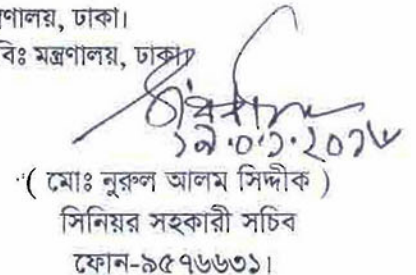 ণালয়, ঢাকা।
বিঃ মন্ত্রণালয়, ঢাকা
১৯.০১.২০১৬
( মোঃ নুরুল আলম সিদ্দীক )
সিনিয়র সহকারী সচিব
ফোন-৯৫৭৬৬৩১।